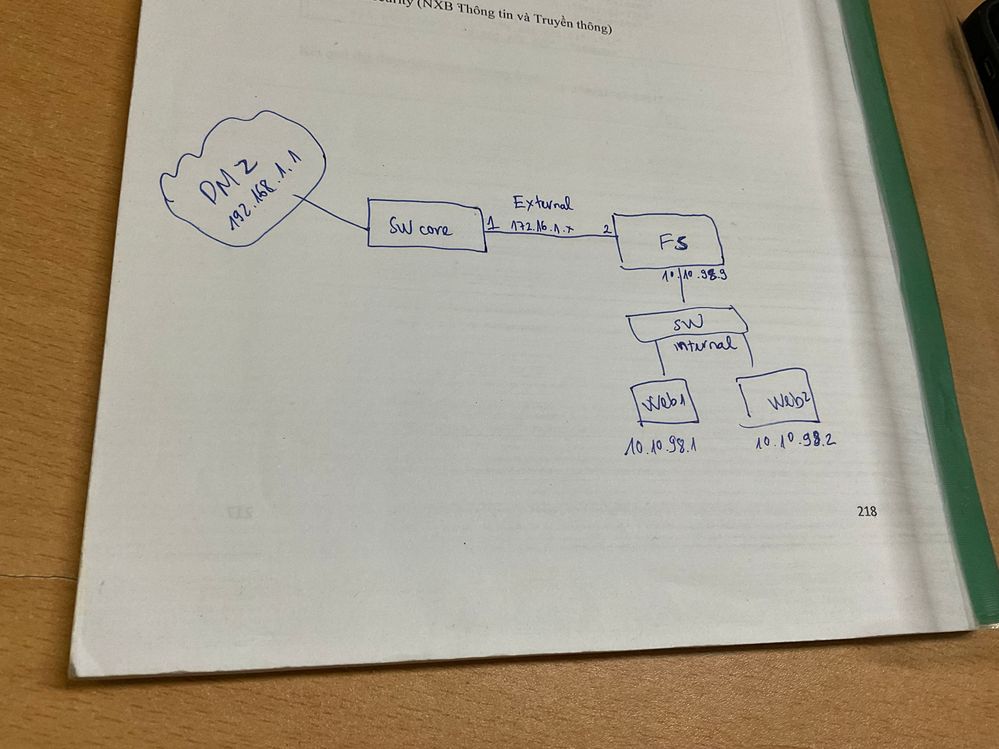 curity (NXB Thông tin và Truyền thông)
DMZ
192.168.1.1
SW core
1
External
172.16.1.x
2
F5
10.10.98.9
SW
internal
Web1
Web2
10.10.98.1
10.10.98.2
218